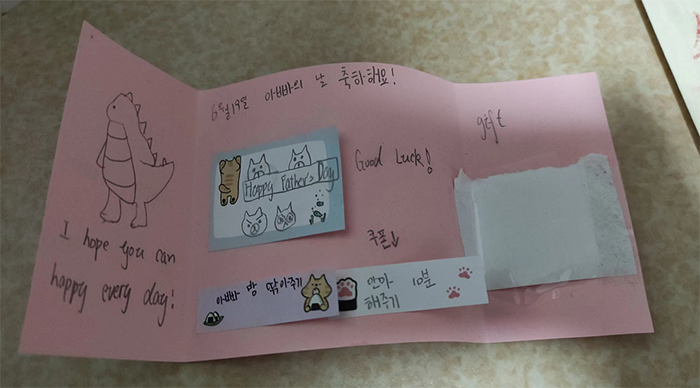 6월19일 아빠의 날 축하해요!
gift
Happy Father's Day
Good Luck!
쿠폰↓
I hope you can
happy every day!
아빠 방 닦아주기
안마 10분
해주기